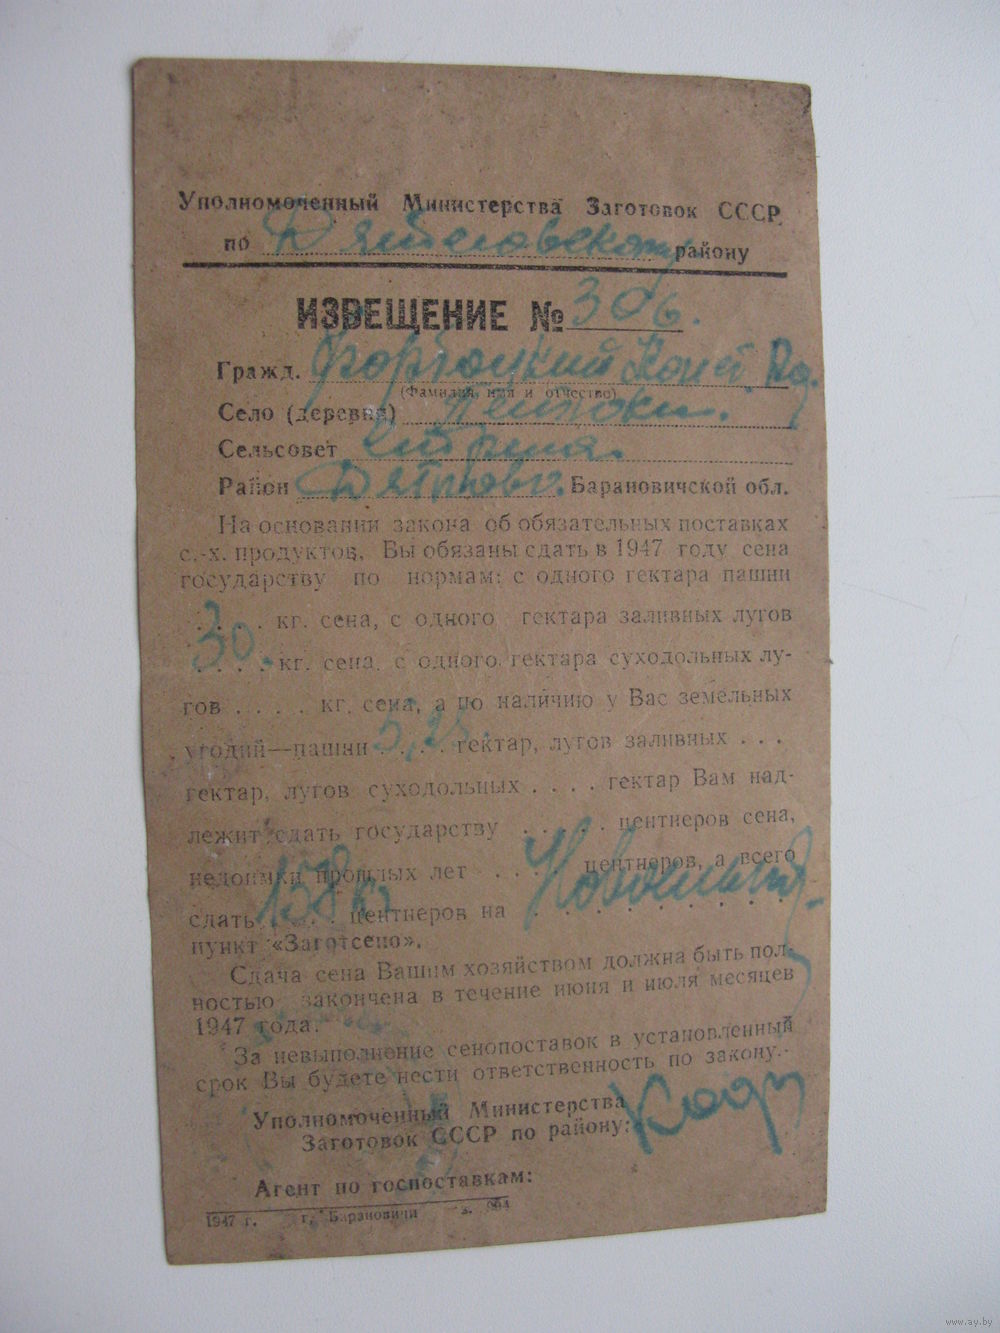 Уполномоченный Министерства Заготовок СССР
по Дятловскому району
ИЗВЕЩЕНИЕ № 306.
Гражд.
(Фамилия, имя и отчество)
Село (деревня)
Сельсовет
Район Дятлово. Барановичской обл.
На основании закона об обязательных поставках
с.-х. продуктов, Вы обязаны сдать в 1947 году сена
государству по нормам: с одного гектара пашни
30 . . . . кг. сена, с одного гектара заливных лугов
. . . . кг. сена, с одного гектара суходольных лу-
гов . . . . кг. сена, а по наличию у Вас земельных
угодий—пашни 5,25 . . . . гектар, лугов заливных . . .
гектар, лугов суходольных . . . . гектар Вам над-
лежит сдать государству . . . . . центнеров сена,
недоимки прошлых лет . . . . центнеров, а всего
сдать 158 кг . . . центнеров на . . . . . . . . . .
пункт «Заготсено».
Сдача сена Вашим хозяйством должна быть пол-
ностью закончена в течение июня и июля месяцев
1947 года.
За невыполнение сенопоставок в установленный
срок Вы будете нести ответственность по закону.
Уполномоченный Министерства
Заготовок СССР по району:
Агент по госпоставкам:
1947 г. г. Барановичи з.
www.ay.by